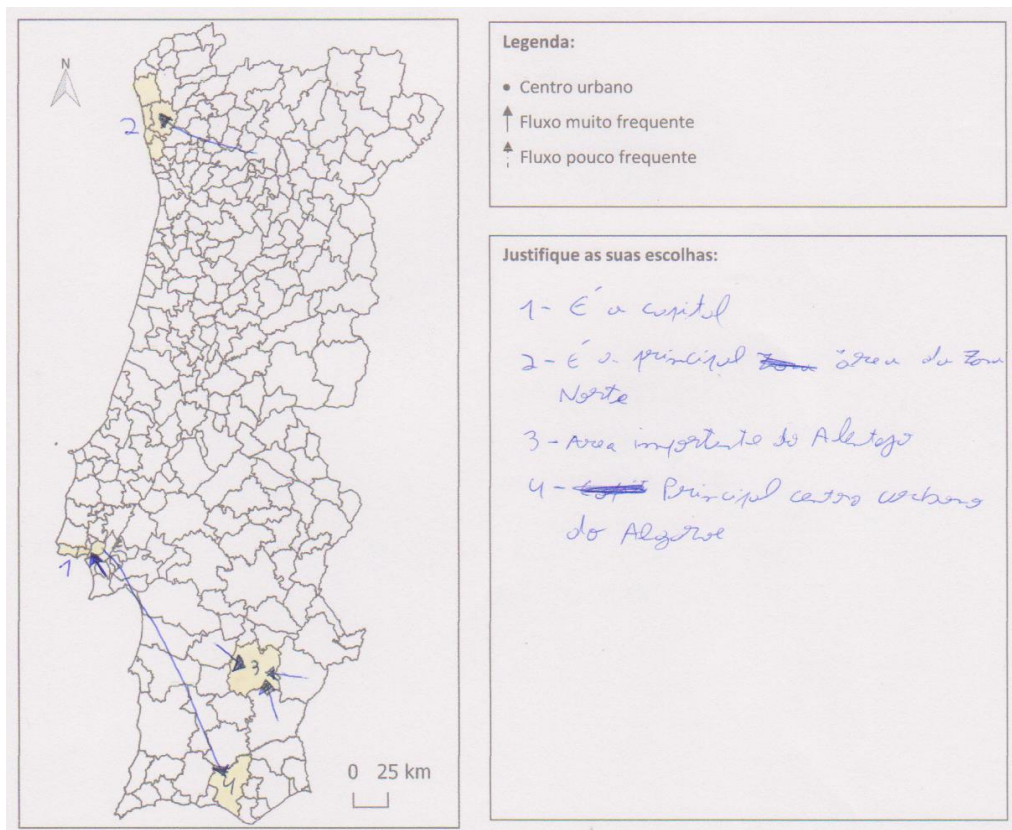 N
2
1
3
4
0 25 km
Legenda:
Centro urbano
Fluxo muito frequente
Fluxo pouco frequente
Justifique as suas escolhas:
1- É a capital
2- É a principal área da Zona
Norte
3- Area importante do Alentejo
4- Principal centro urbano
do Algarve